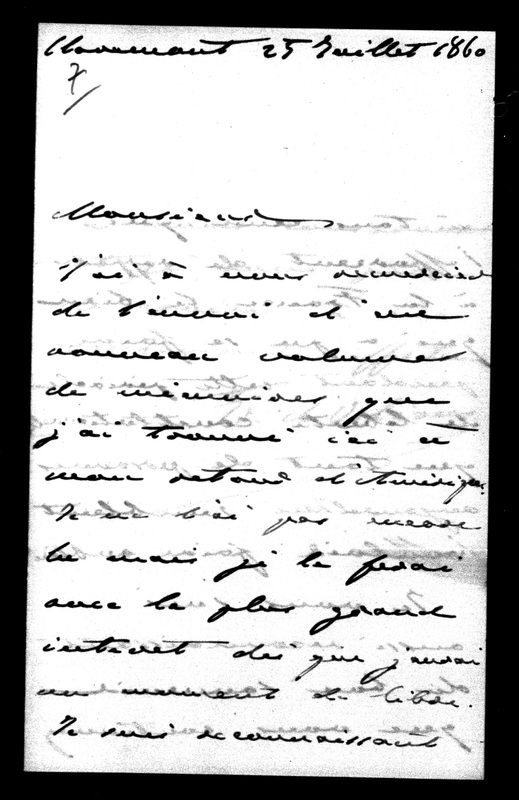 Claremont 25 Juillet 1860
7
Monsieur
J'ai à vous remercier
de l'envoi d'un
nouveau volume
de mémoires que
j'ai trouvé ici à
mon retour d'Amérique.
Je ne l'ai pas encore
lu mais je le ferai
avec le plus grand
intérêt dès que j'aurai
un moment de libre.
Je suis reconnaissant